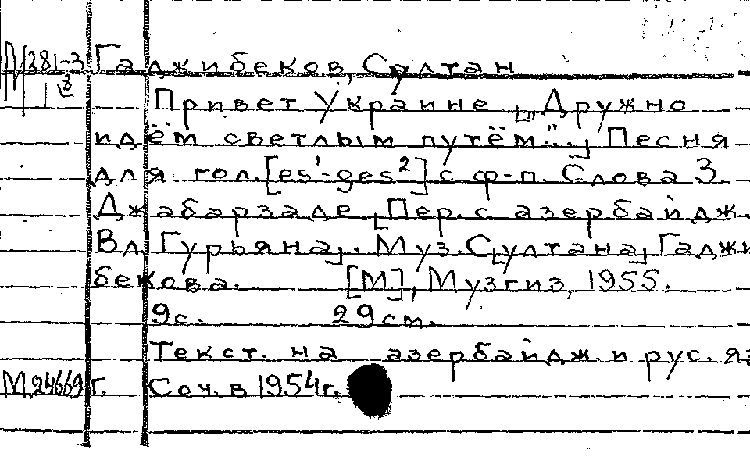 Д 381-3 Гаджибеков, Султан
Привет Украине [„Дружно
идём светлым путём"...] Песня
для гол. [es¹-ges²] с ф-п. Слова З.
Джабарзаде, [Пер. с азербайдж.
Вл. Гурьяна]. Муз. С[ултана] Гаджи
бекова. [М], Музгиз, 1955.
9с. 29см.
Текст. на азербайдж. и рус. яз
М24669 г. Соч. в 1954г.